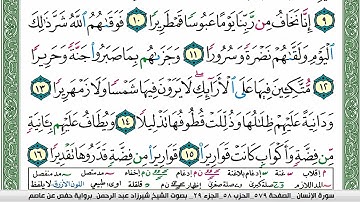 ٩ إِنَّا نَخَافُ مِن رَّبِّنَا يَوْمًا عَبُوسًا قَمْطَرِيرًا ١٠ فَوَقَىٰهُمُ ٱللَّهُ شَرَّ ذَٰلِكَ
ٱلْيَوْمِ وَلَقَّىٰهُمْ نَضْرَةً وَسُرُورًا ١١ وَجَزَىٰهُم بِمَا صَبَرُوا۟ جَنَّةً وَحَرِيرًا
١٢ مُّتَّكِـِٔينَ فِيهَا عَلَى ٱلْأَرَآئِكِ ۖ لَا يَرَوْنَ فِيهَا شَمْسًا وَلَا زَمْهَرِيرًا ١٣
وَدَانِيَةً عَلَيْهِمْ ظِلَٰلُهَا وَذُلِّلَتْ قُطُوفُهَا تَذْلِيلًا ١٤ وَيُطَافُ عَلَيْهِم بِـَٔانِيَةٍ
مِّن فِضَّةٍ وَأَكْوَابٍ كَانَتْ قَوَارِيرَا۠ ١٥ قَوَارِيرَا۟ مِن فِضَّةٍ قَدَّرُوهَا تَقْدِيرًا ١٦
سورة الإنسان . الصفحة ٥٧٩. الحزب ٥٨. الجزء ٢٩. بصوت الشيخ شيرزاد عبد الرحمن. برواية حفص عن عاصم